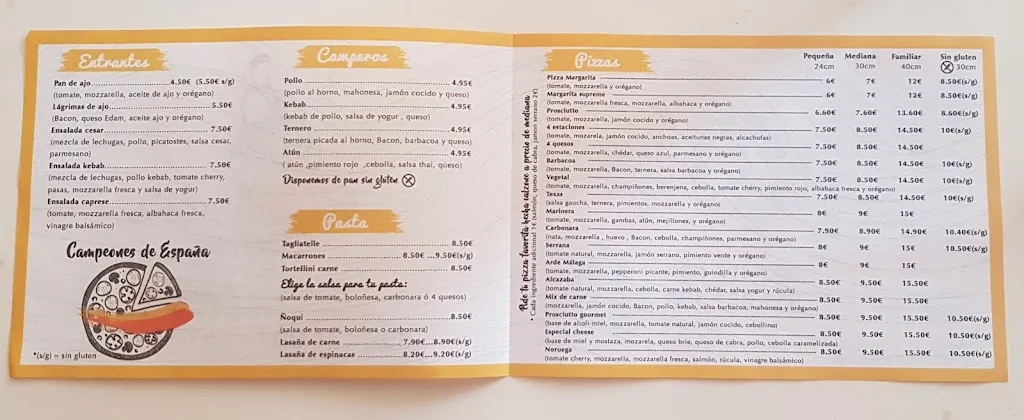 Entrantes
Pan de ajo 4.50€ (5.50€ s/g)
(tomate, mozzarella, aceite de ajo y orégano)
Lágrimas de ajo 5.50€
(Bacon, queso Edam, aceite ajo y orégano)
Ensalada cesar 7.50€
(mezcla de lechugas, pollo, picatostes, salsa cesar,
parmesano)
Ensalada kebab 7.50€
(mezcla de lechugas, pollo kebab, tomate cherry,
pasas, mozzarella fresca y salsa de yogur)
Ensalada caprese 7.50€
(tomate, mozzarella fresca, albahaca fresca,
vinagre balsámico)
Campeones de España
*(s/g) = sin gluten
Camperos
Pollo 4.95€
(pollo al horno, mahonesa, jamón cocido y queso)
Kebab 4.95€
(kebab de pollo, salsa de yogur , queso)
Ternero 4.95€
(ternera picada al horno, Bacon, barbacoa y queso)
Atún 4.95€
( atún ,pimiento rojo ,cebolla, salsa thai, queso)
Disponemos de pan sin gluten
Pasta
Tagliatelle 8.50€
Macarrones 8.50€ ...9.50€(s/g)
Tortellini carne 8.50€
Elige la salsa para tu pasta:
(salsa de tomate, boloñesa, carbonara ó 4 quesos)
Ñoqui 8.50€
(salsa de tomate, boloñesa o carbonara)
Lasaña de carne 7.90€...8.90€(s/g)
Lasaña de espinacas 8.20€...9.20€(s/g)
Pide tu pizza favorita hecha calzone a precio de mediana
* Cada ingrediente adicional 1€ (salmón, queso de cabra, jamón serrano 2€)
Pizzas
Pequeña Mediana Familiar Sin gluten
24cm 30cm 40cm 30cm
Pizza Margarita 6€ 7€ 12€ 8.50€(s/g)
(tomate, mozzarella y orégano)
Margarita supreme 6€ 7€ 12€ 8.50€(s/g)
(tomate, mozzarella fresca, mozzarella, albahaca y orégano)
Prosciutto 6.60€ 7.60€ 13.60€ 8.60€(s/g)
(tomate, mozzarella, jamón cocido y orégano)
4 estaciones 7.50€ 8.50€ 14.50€ 10€(s/g)
(tomate, mozarela, jamón cocido, anchoas, aceitunas negras, alcachofas)
4 quesos 7.50€ 8.50€ 14.50€
(tomate, mozzarella, chédar, queso azul, parmesano y orégano)
Barbacoa 7.50€ 8.50€ 14.50€ 10€(s/g)
(tomate, mozzarella, Bacon, ternera, salsa barbacoa y orégano)
Vegetal 7.50€ 8.50€ 14.50€ 10€(s/g)
(tomate, mozzarella, champiñones, berenjena, cebolla, tomate cherry, pimiento rojo, albahaca fresca y orégano)
Texas 7.50€ 8.50€ 14.50€ 10€(s/g)
(salsa gaucha, ternera, pimientos, mozzarella y orégano)
Marinera 8€ 9€ 15€
(tomate, mozzarella, gambas, atún, mejillones, y orégano)
Carbonara 7.90€ 8.90€ 14.90€ 10.40€(s/g)
(nata, mozzarella , huevo , Bacon, cebolla, champiñones, parmesano y orégano)
Serrana 8€ 9€ 15€ 10.50€(s/g)
(tomate natural, mozzarella, jamón serrano, pimiento verde y orégano)
Arde Málaga 8€ 9€ 15€
(tomate, mozzarella, pepperoni picante, pimiento, guindilla y orégano)
Alcazaba 8.50€ 9.50€ 15.50€
(tomate natural, mozzarella, cebolla, carne kebab, chédar, salsa yogur y rúcula)
Mix de carne 8.50€ 9.50€ 15.50€
(mozzarella, jamón cocido, Bacon, pollo, kebab, salsa barbacoa, mahonesa y orégano)
Prosciutto gourmet 8.50€ 9.50€ 15.50€ 10.50€(s/g)
(base de alioli-miel, mozzarella, tomate natural, jamón cocido, cebollino)
Especial cheese 8.50€ 9.50€ 15.50€ 10.50€(s/g)
(base de miel y mostaza, mozarela, queso brie, queso de cabra, pollo, cebolla caramelizada)
Noruega 8.50€ 9.50€ 15.50€ 10.50€(s/g)
(tomate cherry, mozzarella, mozzarella fresca, salmón, rúcula, vinagre balsámico)